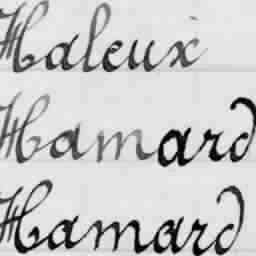 Haleux
Hamard
Hamard